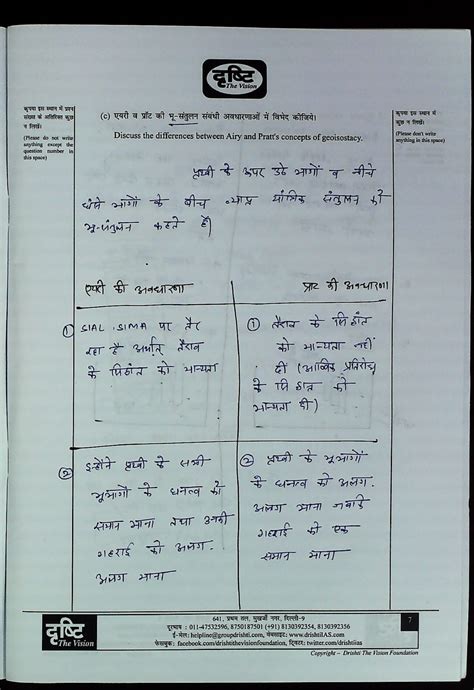 दृष्टि
The Vision
कृपया इस स्थान में प्रश्न
संख्या के अतिरिक्त कुछ
न लिखें।
(Please do not write
anything except the
question number in
this space)
(c) एयरी व प्रॉट की भू-संतुलन संबंधी अवधारणाओं में विभेद कीजिये।
Discuss the differences between Airy and Pratt's concepts of geoisostacy.
कृपया इस स्थान में
कुछ न लिखें।
(Please don't write
anything in this space)
पृथ्वी के ऊपर उठे भागों व नीचे
धंसे भागों के बीच व्याप्त यांत्रिक संतुलन को
भू-संतुलन कहते हैं।
एयरी की अवधारणा
प्राट की अवधारणा
① SIAL, SIMA पर तैर
रहा है अर्थात् तैराव
के सिद्धांत को मान्यता
① तैराव के सिद्धांत
को मान्यता नहीं
दी (आंशिक प्रतिरोध
के सिद्धांत को
मान्यता दी)
② इन्होंने पृथ्वी के सभी
भूभागों के घनत्व को
समान माना तथा उनकी
गहराई को अलग-
अलग माना
② पृथ्वी के भूभागों
के घनत्व को अलग-
अलग माना जबकि
गहराई को एक
समान माना
दृष्टि
The Vision
641, प्रथम तल, मुखर्जी नगर, दिल्ली-9
दूरभाष : 011-47532596, 8750187501 (+91) 8130392354, 8130392356
ई-मेल: helpline@groupdrishti.com, वेबसाइट: www.drishtiIAS.com
फेसबुक: facebook.com/drishtithevisionfoundation, ट्विटर: twitter.com/drishtiias
7
Copyright – Drishti The Vision Foundation